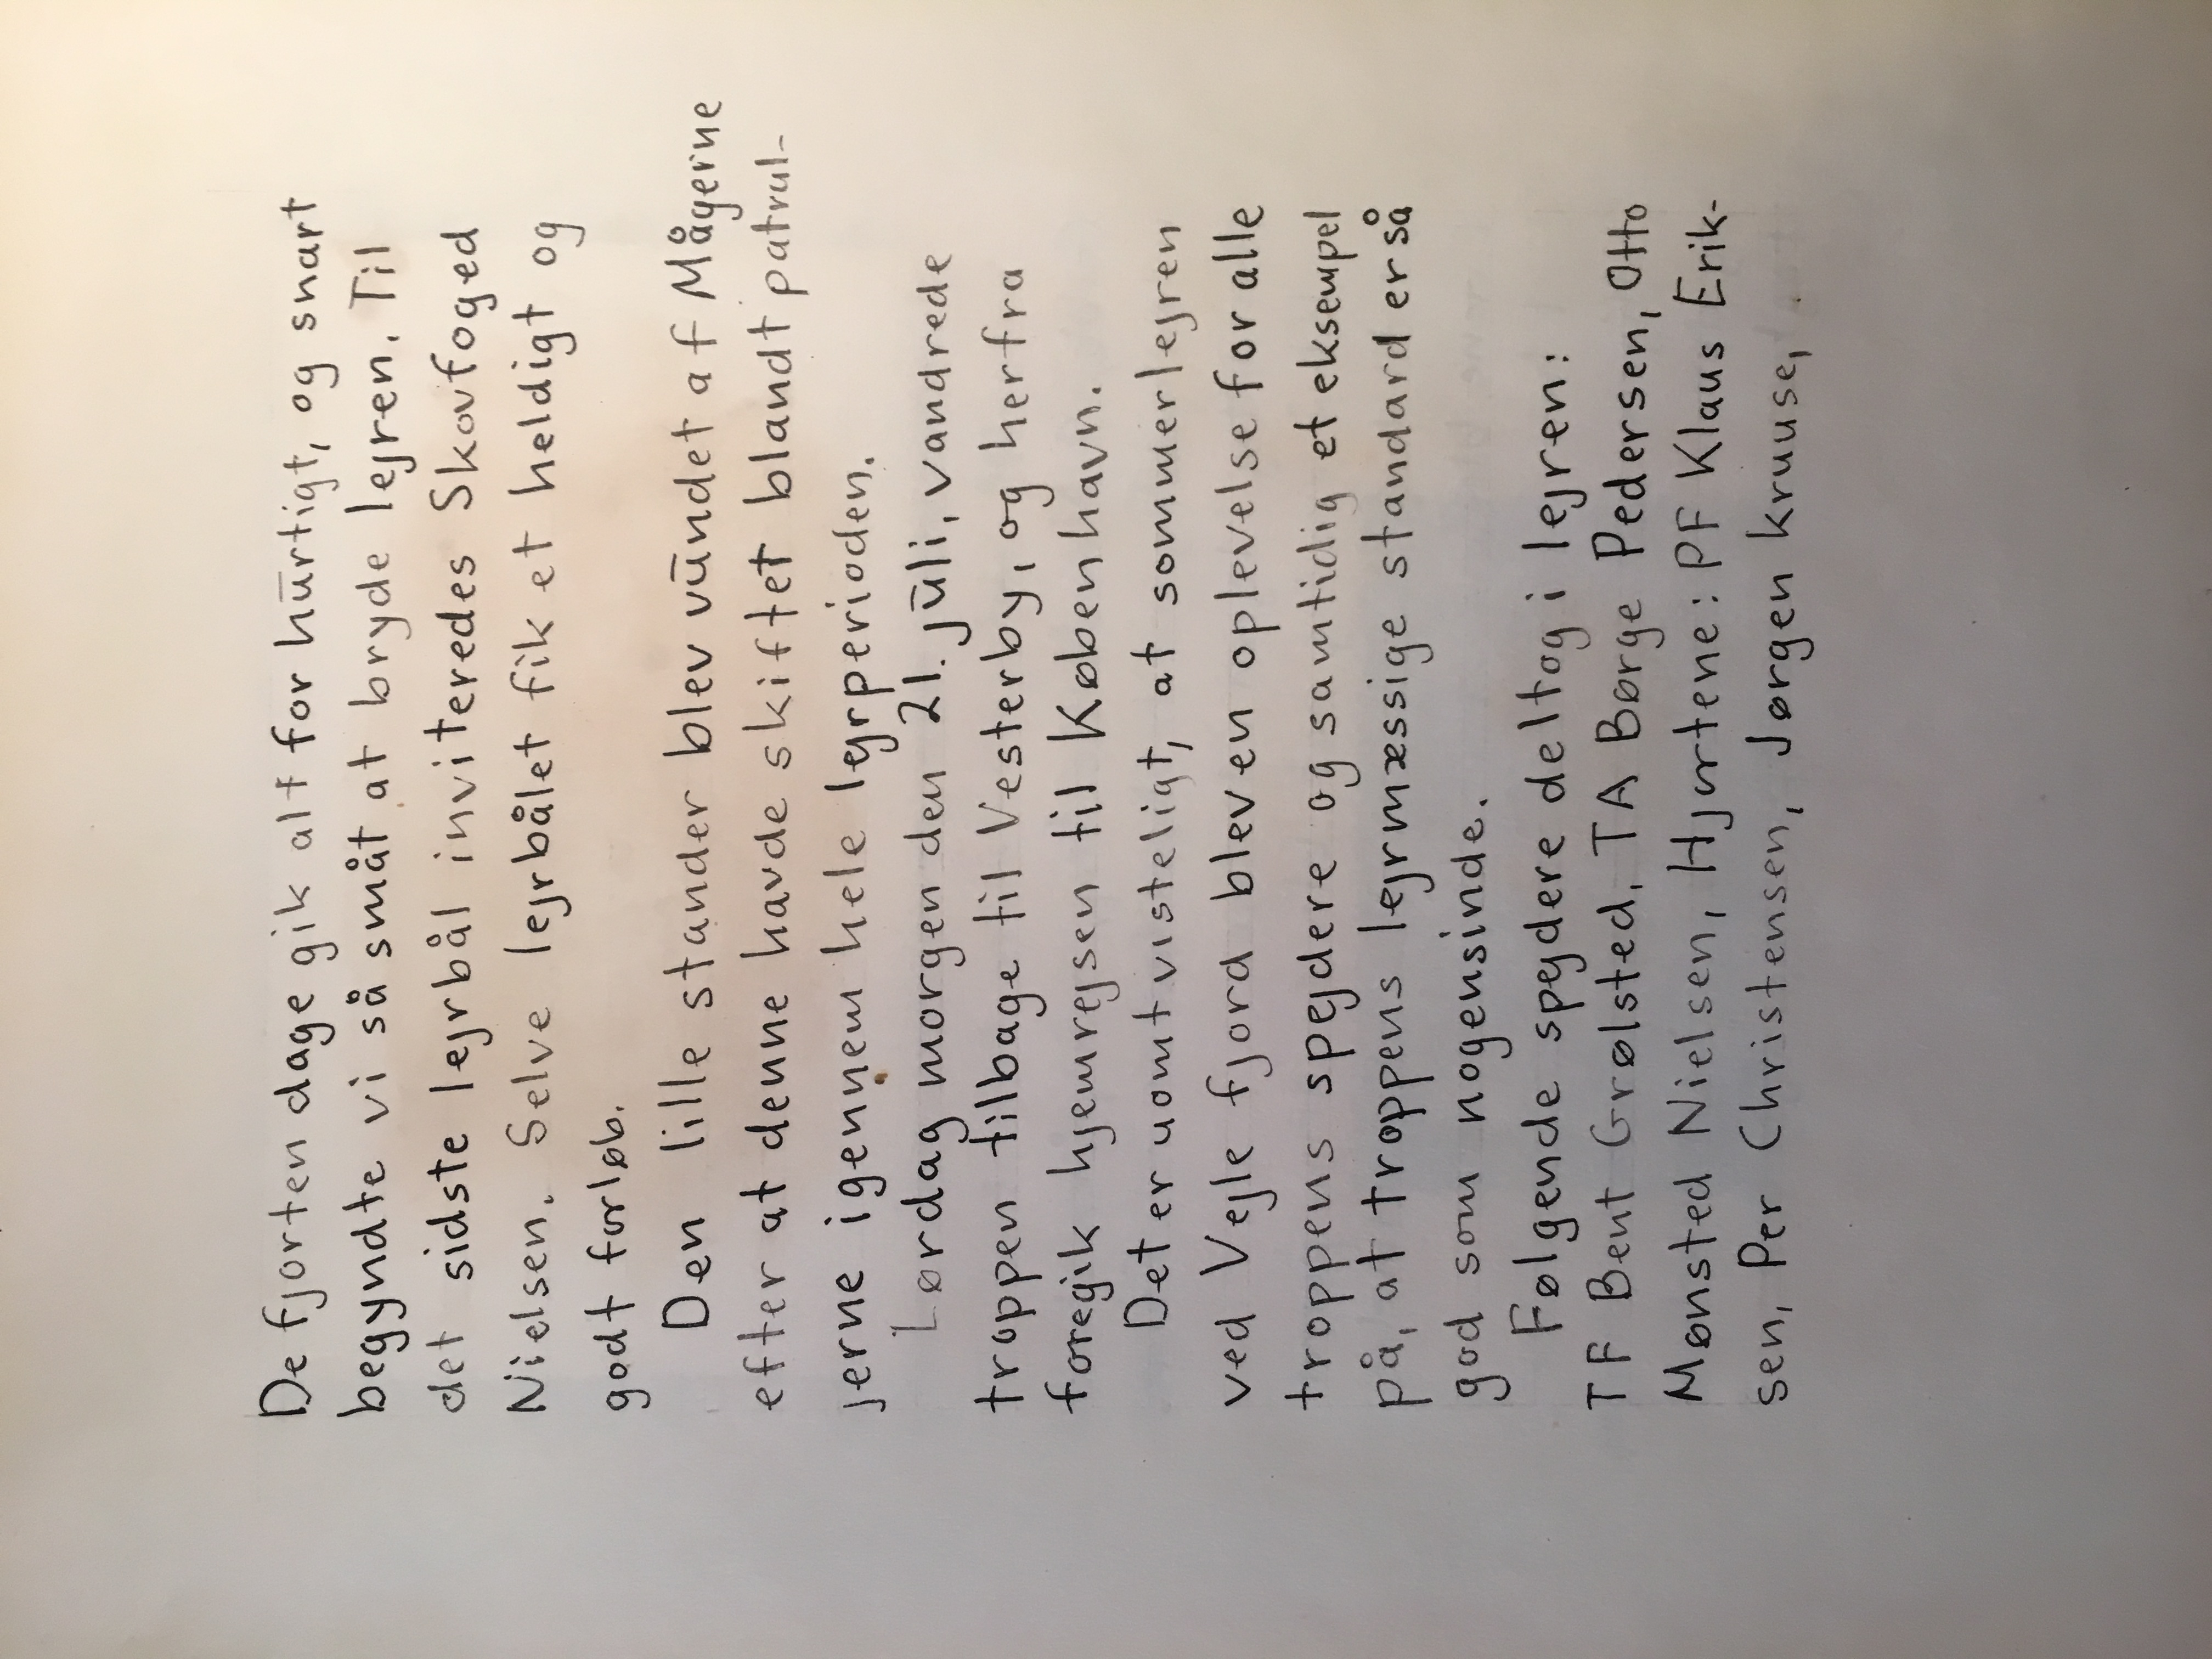 De fjorten dage gik alt for hūrtigt, og snart
begyndte vi så småt at bryde lejren. Til
det sidste lejrbål inviteredes Skovfoged
Nielsen. Selve lejrbålet fik et heldigt og
godt forløb.
Den lille stander blev vūndet af Mågerne
efter at denne havde skiftet blandt patrul-
jerne igennem hele lejrperioden.
Lørdag morgen den 21. jūli, vandrede
troppen tilbage til Vesterby, og herfra
foregik hjemrejsen til København.
Det er uomtvisteligt, at sommerlejren
ved Vejle fjord blev en oplevelse for alle
troppens spejdere og samtidig et eksempel
på, at troppens lejrmæssige standard er så
god som nogensinde.
Følgende spejdere deltog i lejren:
TF Bent Grølsted, TA Børge Pedersen, Otto
Mønsted Nielsen, Hjortene: PF Klaus Erik-
sen, Per Christensen, Jørgen kruuse,